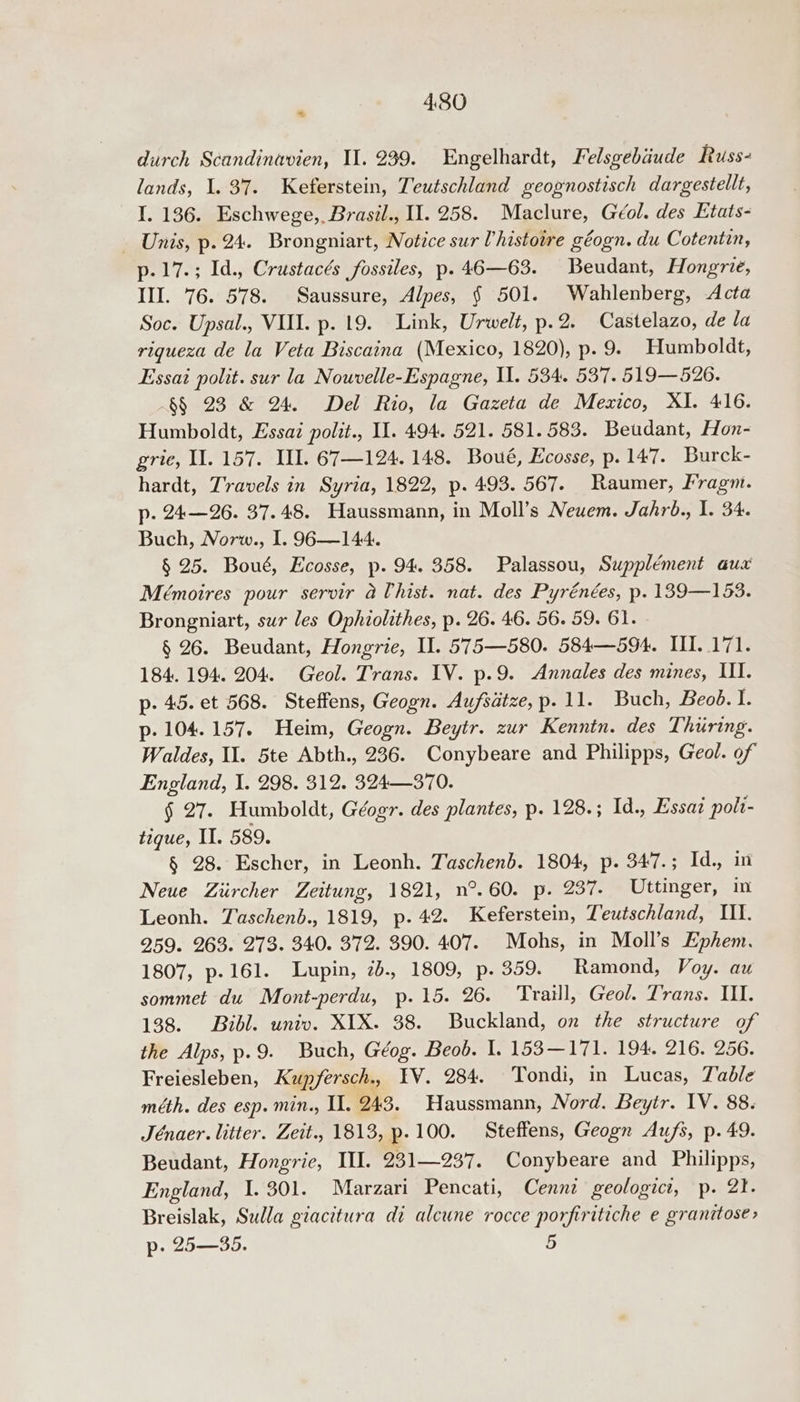 480
durch Scandinavien, II. 239. Engelhardt, Felsgebäude Russ-
lands, I. 37. Keferstein, Teutschland geognostisch dargestellt,
I. 136. Eschwege, Brasil., II. 258. Maclure, Géol. des Etats-
Unis, p. 24. Brongniart, Notice sur l'histoire géogn. du Cotentin,
p. 17.; Id., Crustacés fossiles, p. 46—63. Beudant, Hongrie,
III. 76. 578. Saussure, Alpes, § 501. Wahlenberg, Acta
Soc. Upsal., VIII. p. 19. Link, Urwelt, p. 2. Castelazo, de la
riqueza de la Veta Biscaina (Mexico, 1820), p. 9. Humboldt,
Essai polit. sur la Nouvelle-Espagne, II. 534. 537. 519—526.
§§ 23 & 24. Del Rio, la Gazeta de Mexico, XI. 416.
Humboldt, Essai polit., II. 494. 521. 581. 583. Beudant, Hon-
grie, II. 157. III. 67—124. 148. Boué, Ecosse, p. 147. Burck-
hardt, Travels in Syria, 1822, p. 493. 567. Raumer, Fragm.
p. 24—26. 37. 48. Haussmann, in Moll's Neuem. Jahrb., I. 34.
Buch, Norw., I. 96—144.
§ 25. Boué, Ecosse, p. 94. 358. Palassou, Supplément aux
Mémoires pour servir à l'hist. nat. des Pyrénées, p. 139—153.
Brongniart, sur les Ophiolithes, p. 26. 46. 56. 59. 61.
§ 26. Beudant, Hongrie, II. 575—580. 584—594. III. 171.
184. 194. 204. Geol. Trans. IV. p. 9. Annales des mines, III.
p. 45. et 568. Steffens, Geogn. Aufsätze, p. 11. Buch, Beob. I.
p. 104. 157. Heim, Geogn. Beytr. zur Kenntn. des Thüring.
Waldes, II. 5te Abth., 236. Conybeare and Philipps, Geol. of
England, I. 298. 312. 324—370.
§ 27. Humboldt, Géogr. des plantes, p. 128.; Id., Essai poli-
tique, II. 589.
§ 28. Escher, in Leonh. Taschenb. 1804, p. 347.; Id., in
Neue Zürcher Zeitung, 1821, n°. 60. p. 237. Uttinger, in
Leonh. Taschenb., 1819, p. 42. Keferstein, Teutschland, III.
259. 263. 273. 340. 372. 390. 407. Mohs, in Moll's Ephem.
1807, p. 161. Lupin, ib., 1809, p. 359. Ramond, Voy. au
sommet du Mont-perdu, p. 15. 26. Traill, Geol. Trans. III.
138. Bibl. univ. XIX. 38. Buckland, on the structure of
the Alps, p. 9. Buch, Géog. Beob. I. 153—171. 194. 216. 256.
Freiesleben, Kupfersch., IV. 284. Tondi, in Lucas, Table
méth. des esp. min., II. 243. Haussmann, Nord. Beytr. IV. 88.
Jénaer. litter. Zeit., 1813, p. 100. Steffens, Geogn Aufs, p. 49.
Beudant, Hongrie, III. 231—237. Conybeare and Philipps,
England, I. 301. Marzari Pencati, Cenni geologici, p. 21.
Breislak, Sulla giacitura di alcune rocce porfiritiche e granitose,
p. 25—35. 5